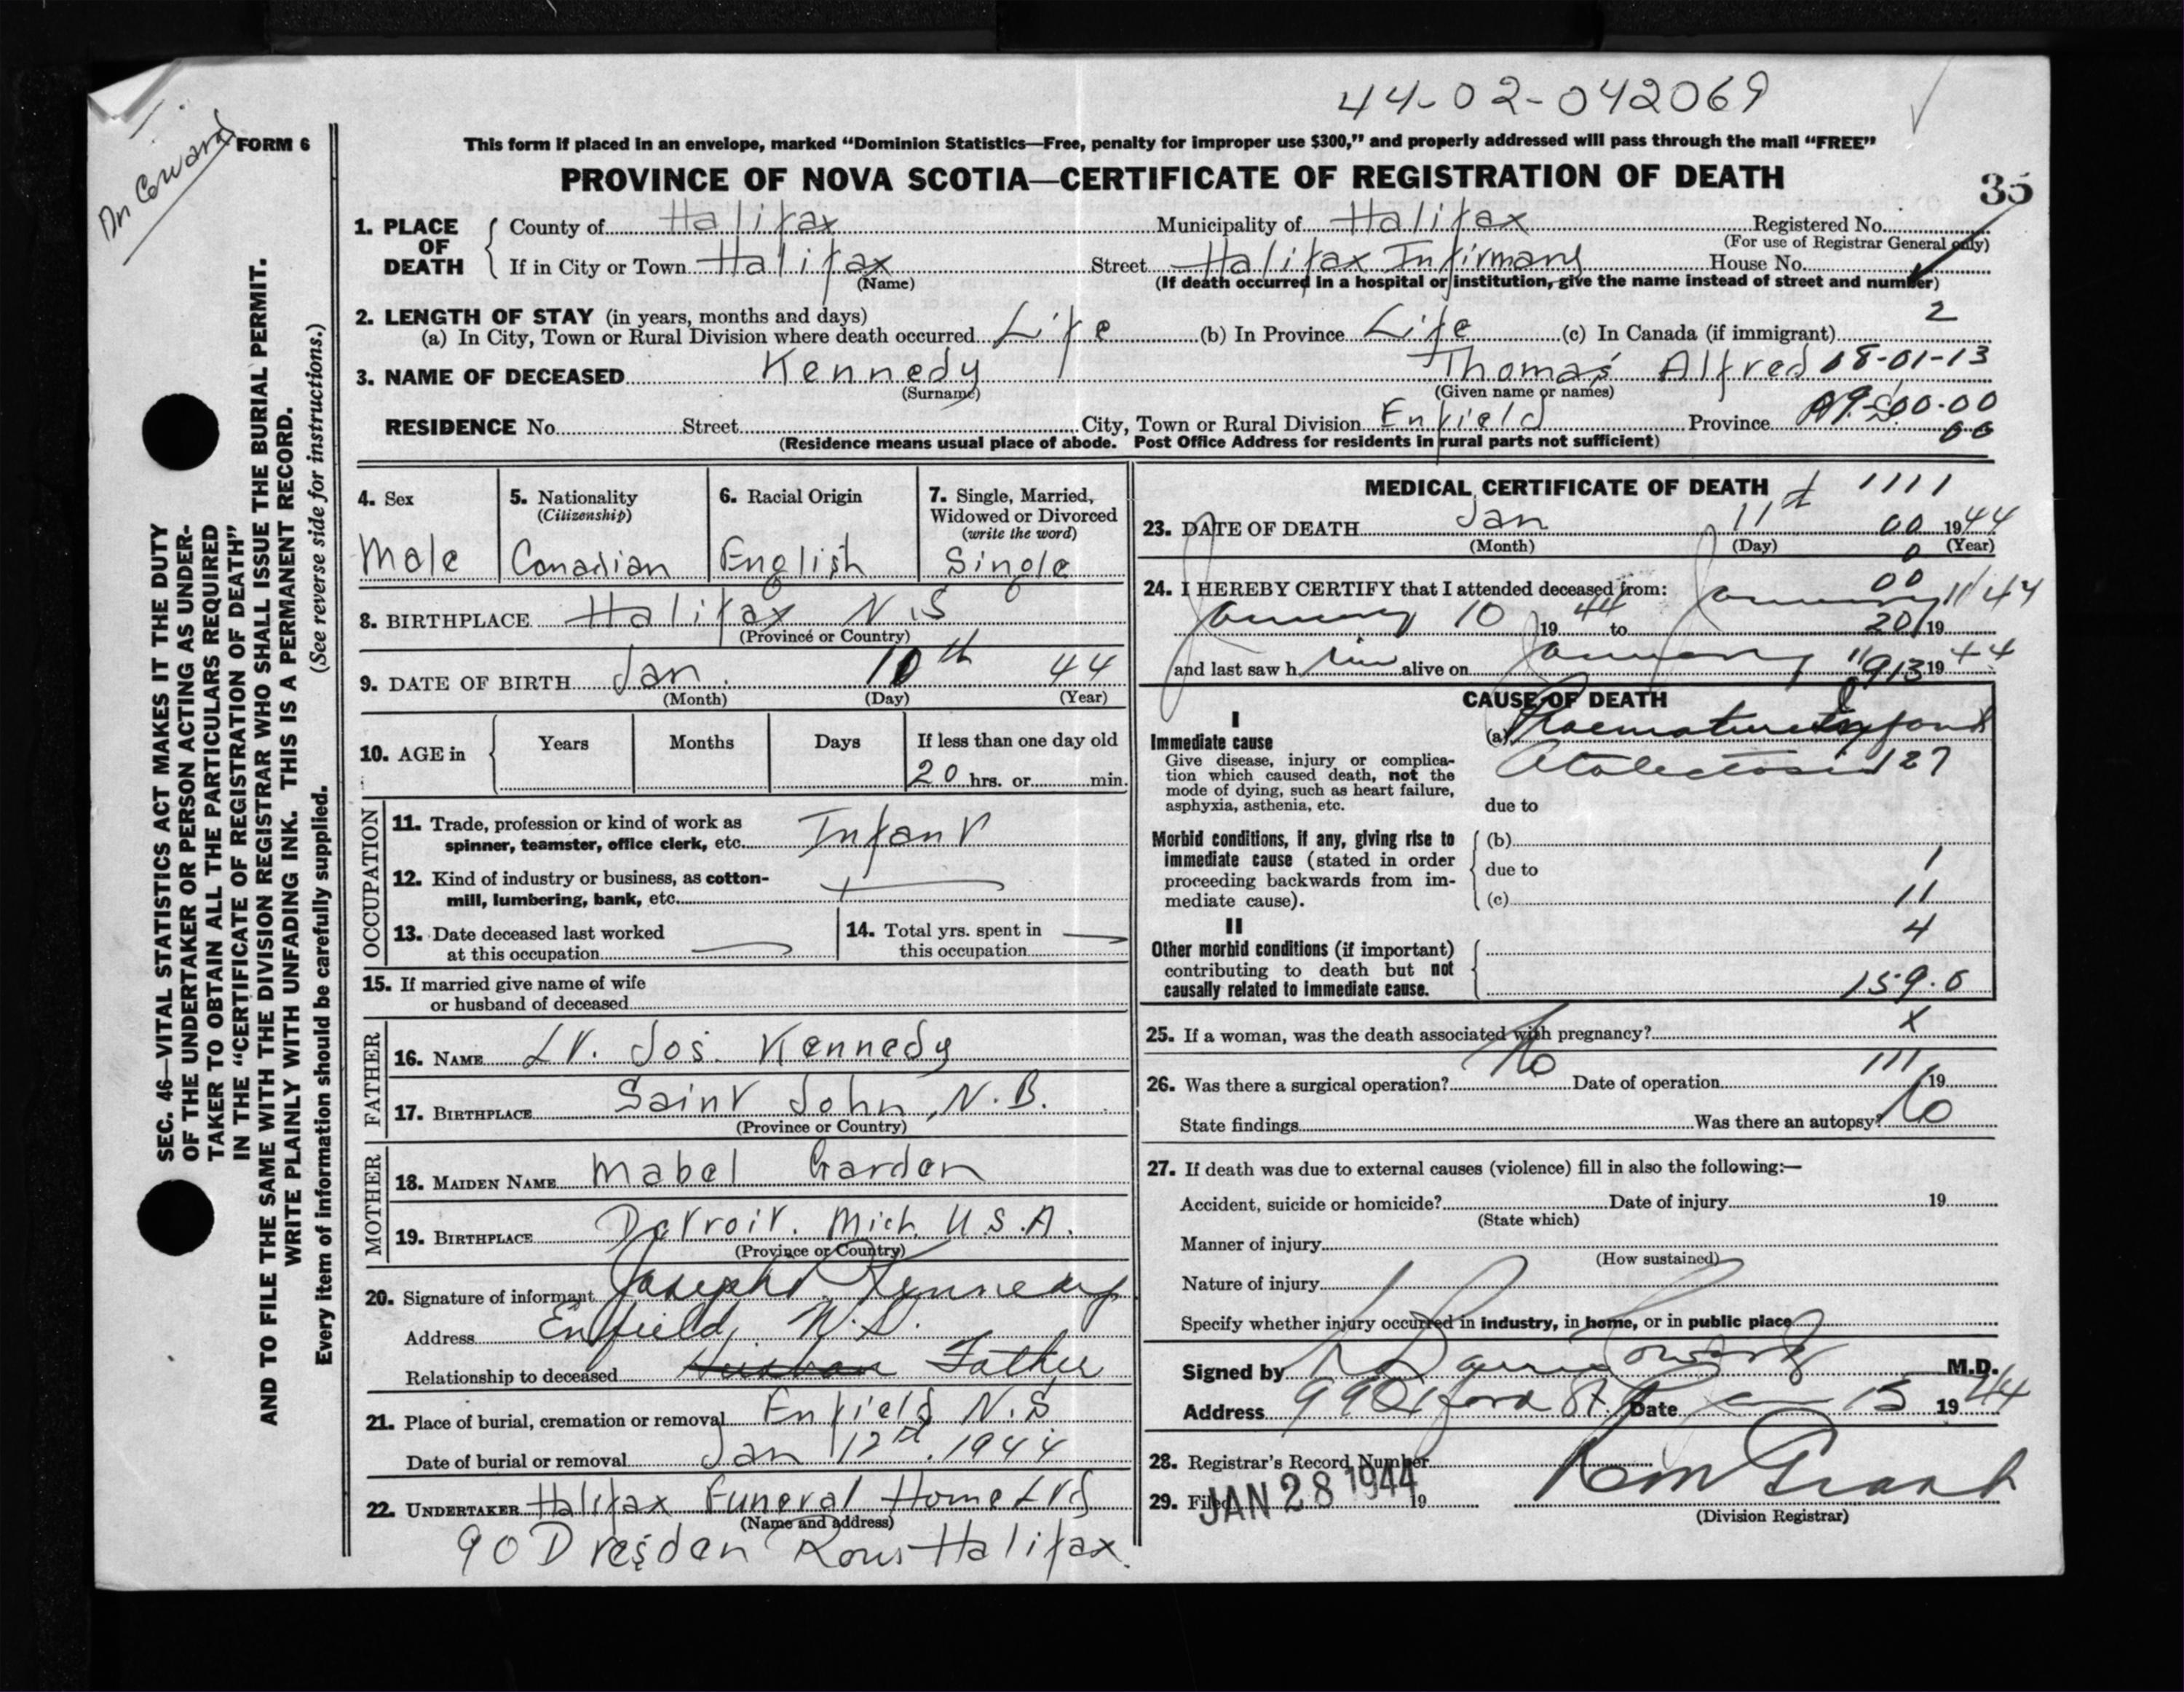 44-02-042069
Dr Coward
FORM 6
This form if placed in an envelope, marked “Dominion Statistics—Free, penalty for improper use $300,” and properly addressed will pass through the mail “FREE”
PROVINCE OF NOVA SCOTIA—CERTIFICATE OF REGISTRATION OF DEATH
35
1. PLACE OF DEATH
County of Halifax Municipality of Halifax Registered No.
(For use of Registrar General only)
If in City or Town Halifax Street Halifax Infirmary House No.
(Name) (If death occurred in a hospital or institution, give the name instead of street and number)
2. LENGTH OF STAY (in years, months and days) 2
(a) In City, Town or Rural Division where death occurred Life (b) In Province Life (c) In Canada (if immigrant)
3. NAME OF DECEASED Kennedy Thomas Alfred 18-01-13
(Surname) (Given name or names)
RESIDENCE No. Street City, Town or Rural Division Enfield Province N.S. 00-00
00
(Residence means usual place of abode. Post Office Address for residents in rural parts not sufficient)
SEC. 46—VITAL STATISTICS ACT MAKES IT THE DUTY
OF THE UNDERTAKER OR PERSON ACTING AS UNDER-
TAKER TO OBTAIN ALL THE PARTICULARS REQUIRED
IN THE “CERTIFICATE OF REGISTRATION OF DEATH”
AND TO FILE THE SAME WITH THE DIVISION REGISTRAR WHO SHALL ISSUE THE BURIAL PERMIT.
WRITE PLAINLY WITH UNFADING INK. THIS IS A PERMANENT RECORD.
Every item of information should be carefully supplied. (See reverse side for instructions.)
4. Sex
Male
5. Nationality
(Citizenship)
Canadian
6. Racial Origin
English
7. Single, Married,
Widowed or Divorced
(write the word)
Single
8. BIRTHPLACE Halifax N.S
(Province or Country)
9. DATE OF BIRTH Jan. 10th 44
(Month) (Day) (Year)
10. AGE in Years Months Days If less than one day old
20 hrs. or min.
OCCUPATION
11. Trade, profession or kind of work as
spinner, teamster, office clerk, etc. Infant
12. Kind of industry or business, as cotton-
mill, lumbering, bank, etc.
13. Date deceased last worked
at this occupation
14. Total yrs. spent in
this occupation
15. If married give name of wife
or husband of deceased
FATHER
16. NAME Lt. Jos. Kennedy
17. BIRTHPLACE Saint John, N.B.
(Province or Country)
MOTHER
18. MAIDEN NAME Mabel Garden
19. BIRTHPLACE Detroit. Mich. U.S.A.
(Province or Country)
20. Signature of informant Joseph Kennedy
Address Enfield, N.S.
Relationship to deceased Father
21. Place of burial, cremation or removal Enfield N.S
Date of burial or removal Jan 12th. 1944
22. UNDERTAKER Halifax Funeral Home Ltd
(Name and address)
90 Dresden Row Halifax.
MEDICAL CERTIFICATE OF DEATH 1111
23. DATE OF DEATH Jan 11th 00 1944
(Month) (Day) (Year)
0
24. I HEREBY CERTIFY that I attended deceased from: 00
January 10 1944 to January 11/44
20/ 19
and last saw h im alive on January 11 1944
913
CAUSE OF DEATH
I
Immediate cause
Give disease, injury or complica-
tion which caused death, not the
mode of dying, such as heart failure,
asphyxia, asthenia, etc.
(a) Praematurity and
Atalectosis 127
due to
Morbid conditions, if any, giving rise to
immediate cause (stated in order
proceeding backwards from im-
mediate cause).
(b)
due to 1
(c) 11
II 4
Other morbid conditions (if important)
contributing to death but not
causally related to immediate cause. 159.0
25. If a woman, was the death associated with pregnancy? X
26. Was there a surgical operation? No Date of operation 111 19
State findings Was there an autopsy? No
27. If death was due to external causes (violence) fill in also the following:—
Accident, suicide or homicide? Date of injury 19
(State which)
Manner of injury
(How sustained)
Nature of injury
Specify whether injury occurred in industry, in home, or in public place
Signed by Coward M.D.
Address 99 Oxford St. Date Jan 15 1944
28. Registrar's Record Number
29. Filed JAN 28 1944 19
(Division Registrar)